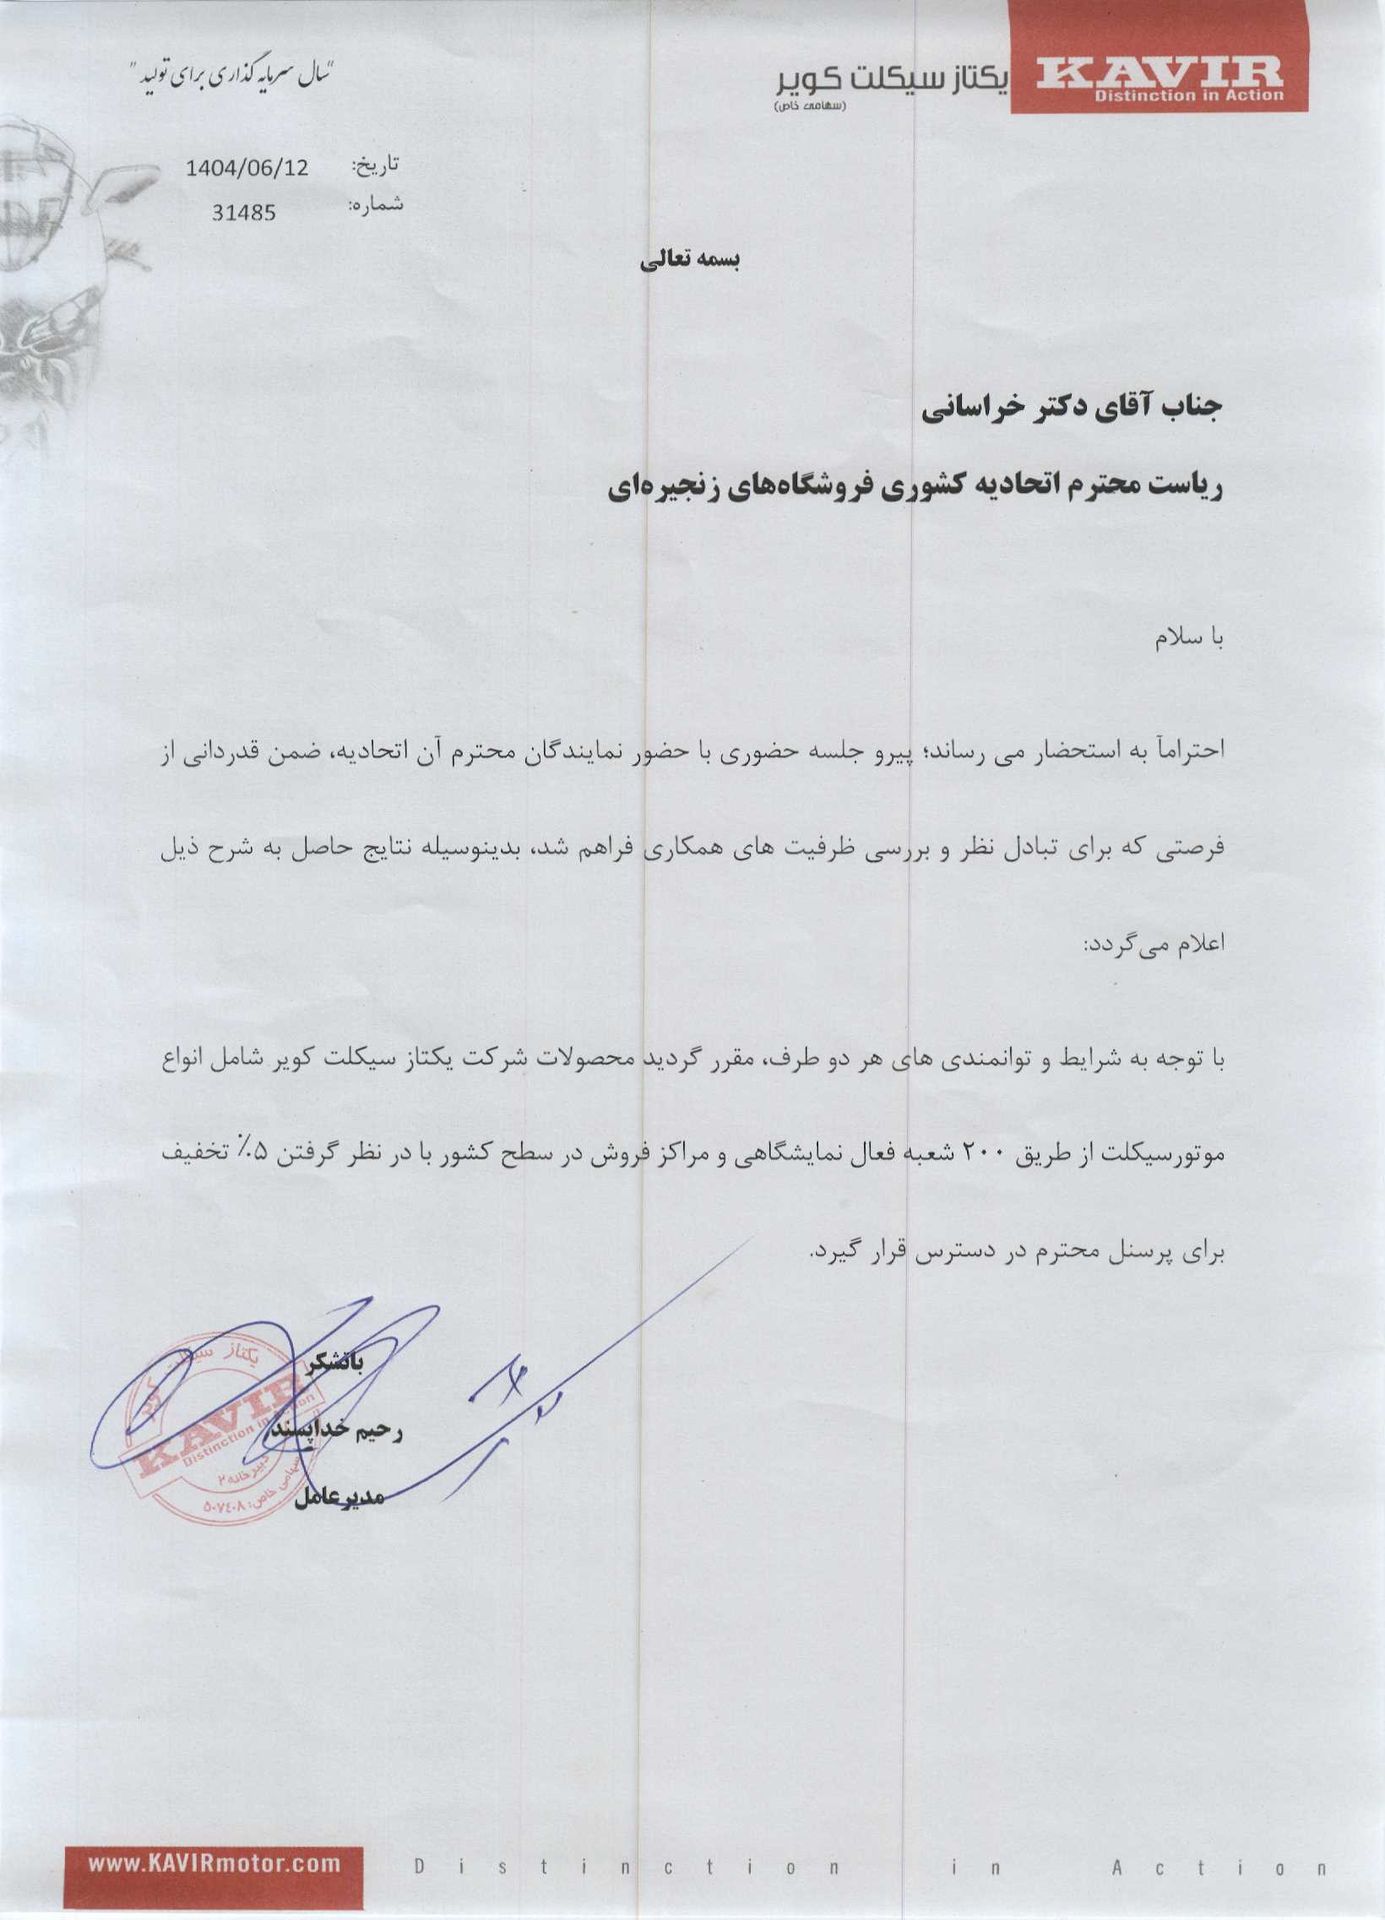 KAVIR
Distinction in Action
یکتاز سیکلت کویر
(سهامی خاص)
"سال سرمایه گذاری برای تولید"
تاریخ: 1404/06/12
شماره: 31485
بسمه تعالی
جناب آقای دکتر خراسانی
ریاست محترم اتحادیه کشوری فروشگاه‌های زنجیره‌ای
با سلام
احتراماً به استحضار می رساند؛ پیرو جلسه حضوری با حضور نمایندگان محترم آن اتحادیه، ضمن قدردانی از
فرصتی که برای تبادل نظر و بررسی ظرفیت های همکاری فراهم شد، بدینوسیله نتایج حاصل به شرح ذیل
اعلام می‌گردد:
با توجه به شرایط و توانمندی های هر دو طرف، مقرر گردید محصولات شرکت یکتاز سیکلت کویر شامل انواع
موتورسیکلت از طریق ۲۰۰ شعبه فعال نمایشگاهی و مراکز فروش در سطح کشور با در نظر گرفتن ۵٪ تخفیف
برای پرسنل محترم در دسترس قرار گیرد.
باتشکر
رحیم خداپسند
مدیرعامل
یکتاز سیکلت کویر
KAVIR
Distinction in Action
دبیرخانه ۲
سهامی خاص: ۵۰۷٤۰۸
www.KAVIRmotor.com
Distinction in Action